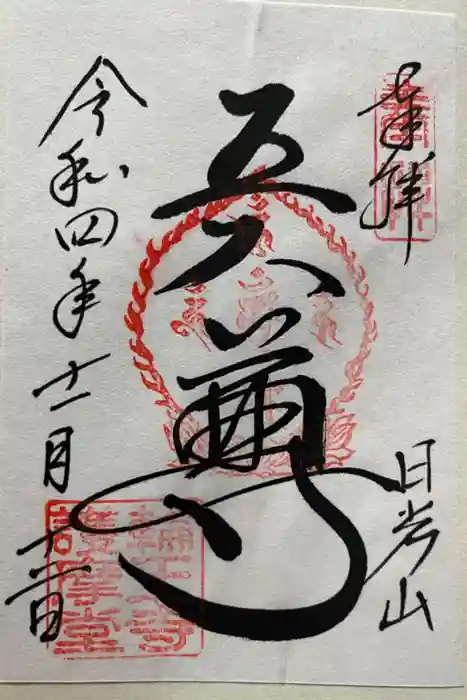 奉拝
日光山
五大尊
令和四年十一月十一日
輪王寺
護摩堂